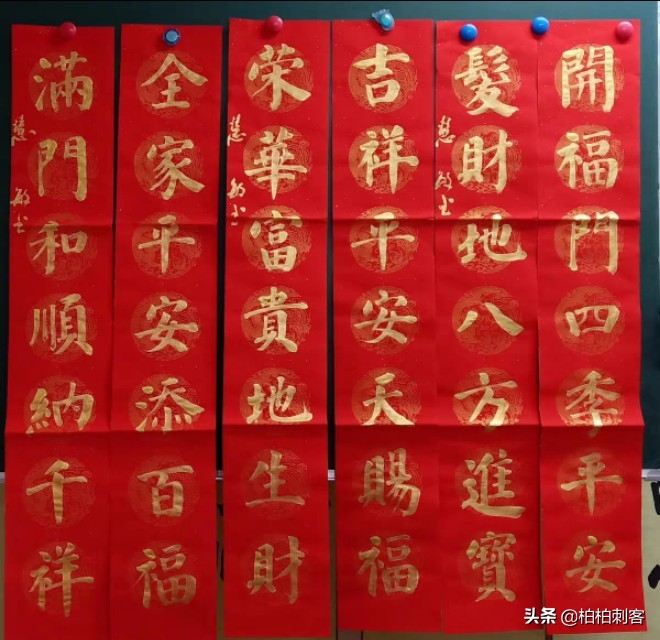 開福門四季平安
髮財地八方進寶
吉祥平安天賜福
榮華富貴地生財
全家平安添百福
滿門和順納千祥
头条 @柏柏刺客